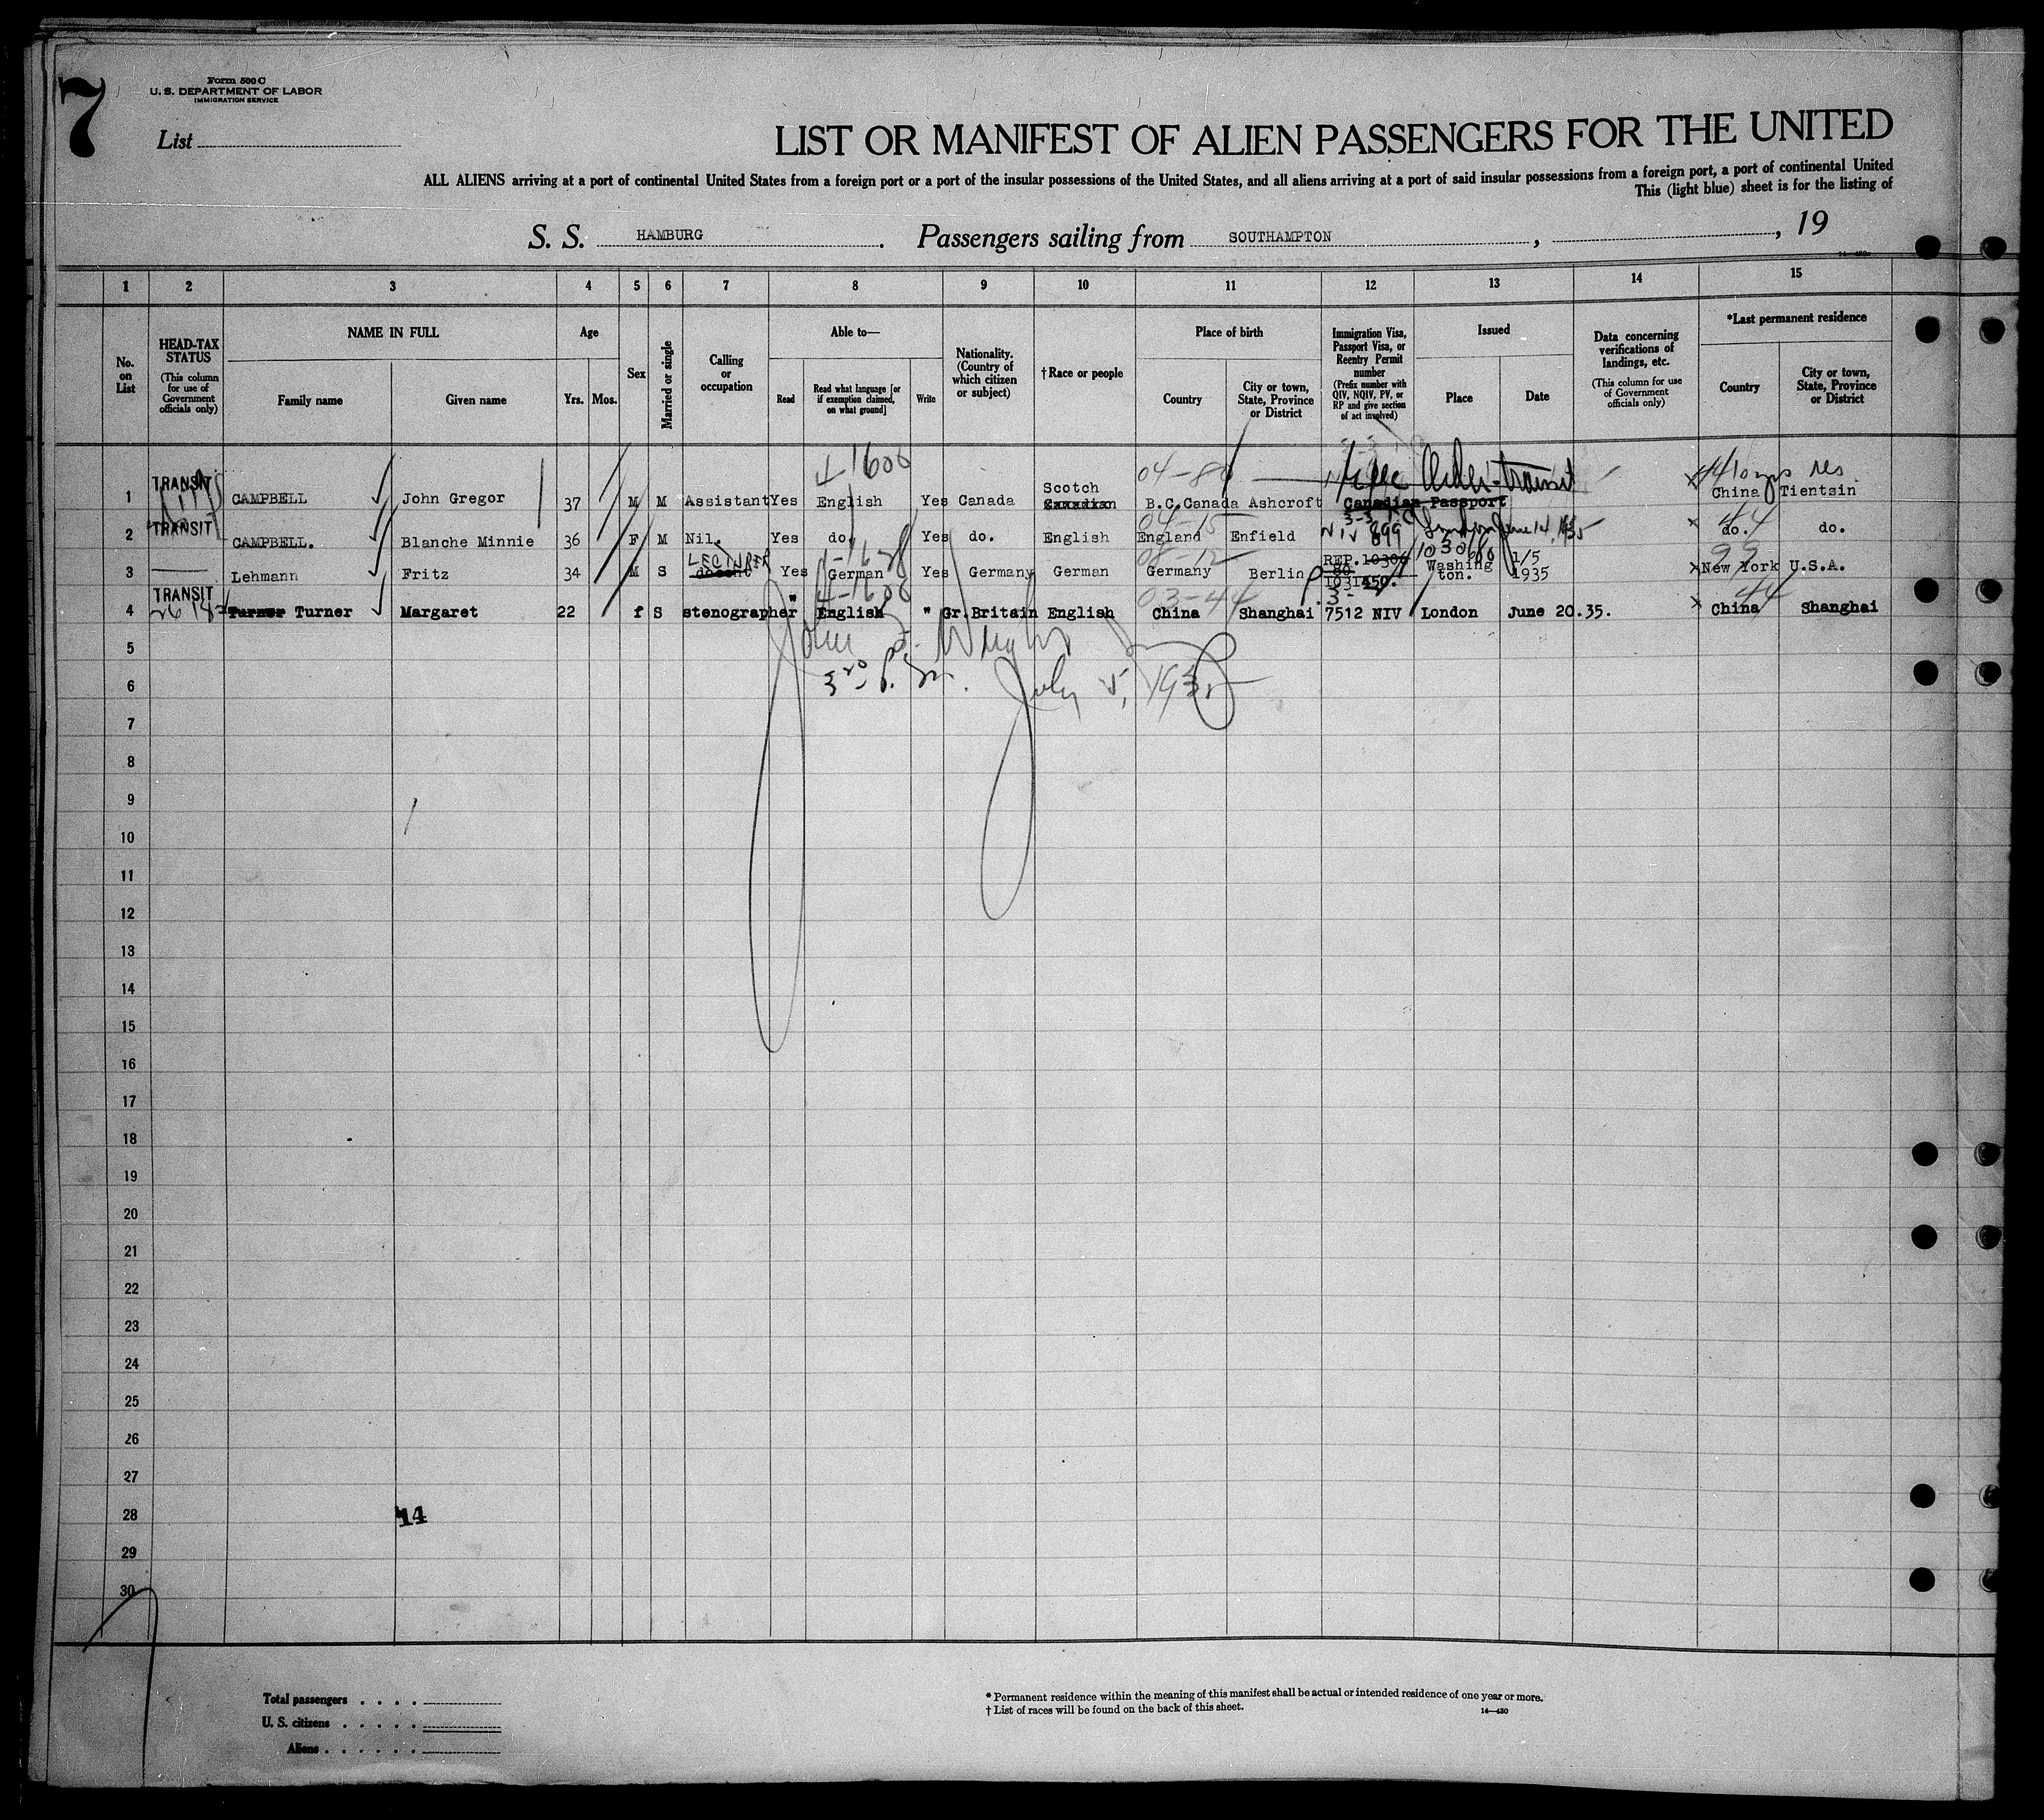 7
Form 500 C
U. S. DEPARTMENT OF LABOR
IMMIGRATION SERVICE
List
LIST OR MANIFEST OF ALIEN PASSENGERS FOR THE UNITED
ALL ALIENS arriving at a port of continental United States from a foreign port or a port of the insular possessions of the United States, and all aliens arriving at a port of said insular possessions from a foreign port, a port of continental United
This (light blue) sheet is for the listing of
S. S. HAMBURG . Passengers sailing from SOUTHAMPTON , , 19
1 2 3 4 5 6 7 8 9 10 11 12 13 14 15
No. on List
HEAD-TAX STATUS (This column for use of Government officials only)
NAME IN FULL Family name Given name
Age Yrs. Mos.
Sex
Married or single
Calling or occupation
Able to— Read Read what language [or if exemption claimed, on what ground] Write
Nationality. (Country of which citizen or subject)
†Race or people
Place of birth Country City or town, State, Province or District
Immigration Visa, Passport Visa, or Reentry Permit number (Prefix number with QIV, NQIV, PV, or RP and give section of act involved)
Issued Place Date
Data concerning verifications of landings, etc. (This column for use of Government officials only)
*Last permanent residence Country City or town, State, Province or District
4-1606 04-80 transit 44 10 yrs res
1 TRANSIT CAMPBELL John Gregor 37 M M Assistant Yes English Yes Canada Scotch Canadian B.C.Canada Ashcroft Canadian Passport China Tientsin
04-15 3-3 44
2 TRANSIT CAMPBELL. Blanche Minnie 36 F M Nil. Yes do. Yes do. English England Enfield NIV 899 London June 14, 1935 do. do.
LECTURER 08-12 103068 99
3 Lehmann Fritz 34 M S docent Yes German Yes Germany German Germany Berlin REP. 10306 Washington. 1/5 1935 New York U.S.A.
4-1606 03-44 3- 44
4 TRANSIT Turner Turner Margaret 22 f S stenographer " English " Gr.Britain English China Shanghai 7512 NIV London June 20.35. China Shanghai
5
John Wright
6
July 5, 1935
7
8
9
10
11
12
13
14
15
16
17
18
19
20
21
22
23
24
25
26
27
28
14
29
30
Total passengers . . . .
U. S. citizens . . . . .
Aliens . . . . . .
* Permanent residence within the meaning of this manifest shall be actual or intended residence of one year or more.
† List of races will be found on the back of this sheet.
14—430